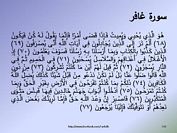 سورة غافر
هُوَ الَّذِي يُحْيِي وَيُمِيتُ فَإِذَا قَضَى أَمْرًا فَإِنَّمَا يَقُولُ لَهُ كُنْ فَيَكُونُ
(٦٨) أَلَمْ تَرَ إِلَى الَّذِينَ يُجَادِلُونَ فِي آيَاتِ اللَّهِ أَنَّى يُصْرَفُونَ (٦٩)
الَّذِينَ كَذَّبُوا بِالْكِتَابِ وَبِمَا أَرْسَلْنَا بِهِ رُسُلَنَا فَسَوْفَ يَعْلَمُونَ (٧٠) إِذِ
الْأَغْلَالُ فِي أَعْنَاقِهِمْ وَالسَّلَاسِلُ يُسْحَبُونَ (٧١) فِي الْحَمِيمِ ثُمَّ فِي
النَّارِ يُسْجَرُونَ (٧٢) ثُمَّ قِيلَ لَهُمْ أَيْنَ مَا كُنْتُمْ تُشْرِكُونَ (٧٣) مِنْ دُونِ
اللَّهِ قَالُوا ضَلُّوا عَنَّا بَلْ لَمْ نَكُنْ نَدْعُو مِنْ قَبْلُ شَيْئًا كَذَلِكَ يُضِلُّ اللَّهُ
الْكَافِرِينَ (٧٤) ذَلِكُمْ بِمَا كُنْتُمْ تَفْرَحُونَ فِي الْأَرْضِ بِغَيْرِ الْحَقِّ وَبِمَا
كُنْتُمْ تَمْرَحُونَ (٧٥) ادْخُلُوا أَبْوَابَ جَهَنَّمَ خَالِدِينَ فِيهَا فَبِئْسَ مَثْوَى
الْمُتَكَبِّرِينَ (٧٦) فَاصْبِرْ إِنَّ وَعْدَ اللَّهِ حَقٌّ فَإِمَّا نُرِيَنَّكَ بَعْضَ الَّذِي
نَعِدُهُمْ أَوْ نَتَوَفَّيَنَّكَ فَإِلَيْنَا يُرْجَعُونَ (٧٧)